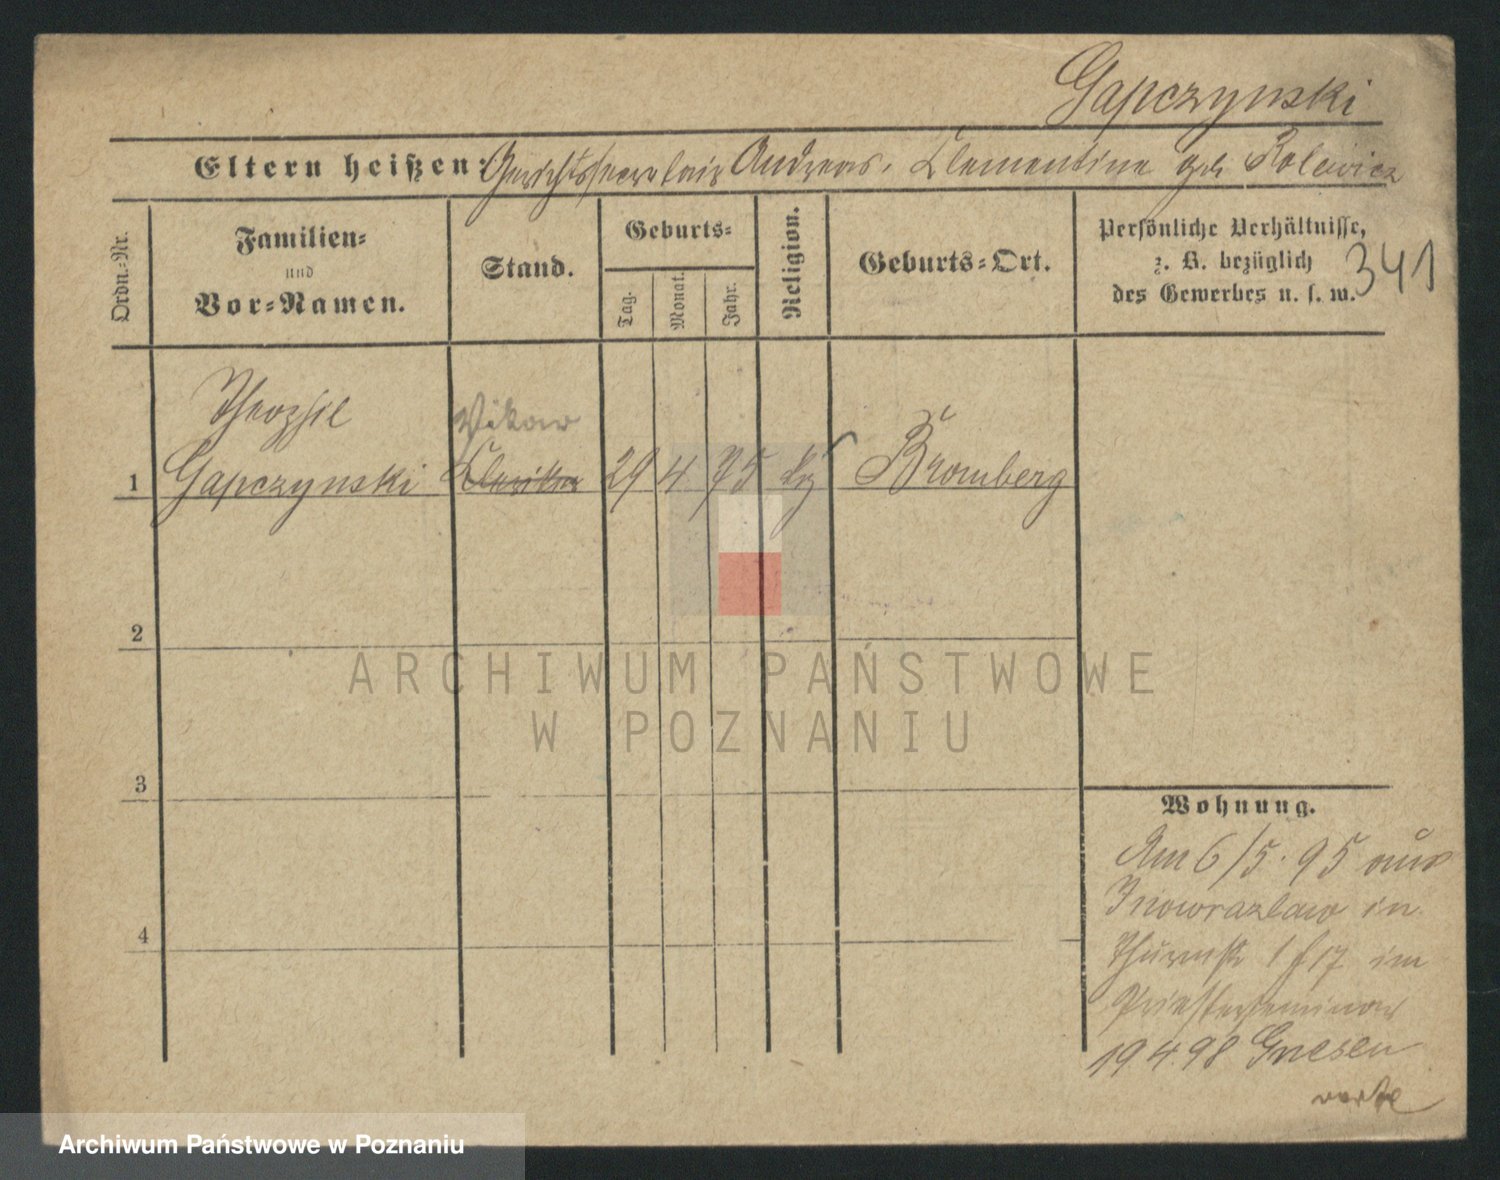 Gapczynski
Eltern heißen: Gerichtssecretair Andreas, Clementine geb Rolewicz
Ordn.-Nr.
Familien-
und
Vor-Namen.
Stand.
Geburts-
Tag.
Monat.
Jahr.
Religion.
Geburts-Ort.
Persönliche Verhältnisse,
z. B. bezüglich
des Gewerbes u. s. w.
341
Theophil
Vikar
1 Gapczynski Kleriker 29 4 75 Bromberg
2
3
4
ARCHIWUM PAŃSTWOWE
W POZNANIU
Wohnung.
Am 6/5. 95 aus
Inowrazlaw in
Thurmstr 1 f 17 im
Priesterseminar
19 4. 98 Gnesen
Archiwum Państwowe w Poznaniu